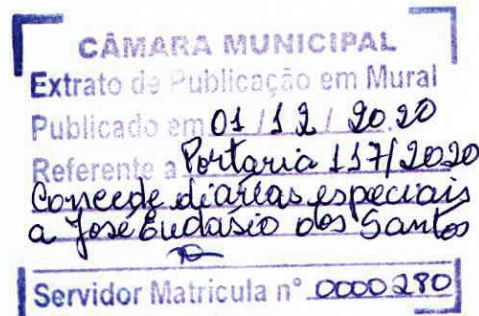 CÂMARA MUNICIPAL
Extrato de Publicação em Mural
Publicado em 01/12/2020
Referente a Portaria 117/2020
Concede diárias especiais
a José Eudásio dos Santos
Servidor Matricula n° 0000280